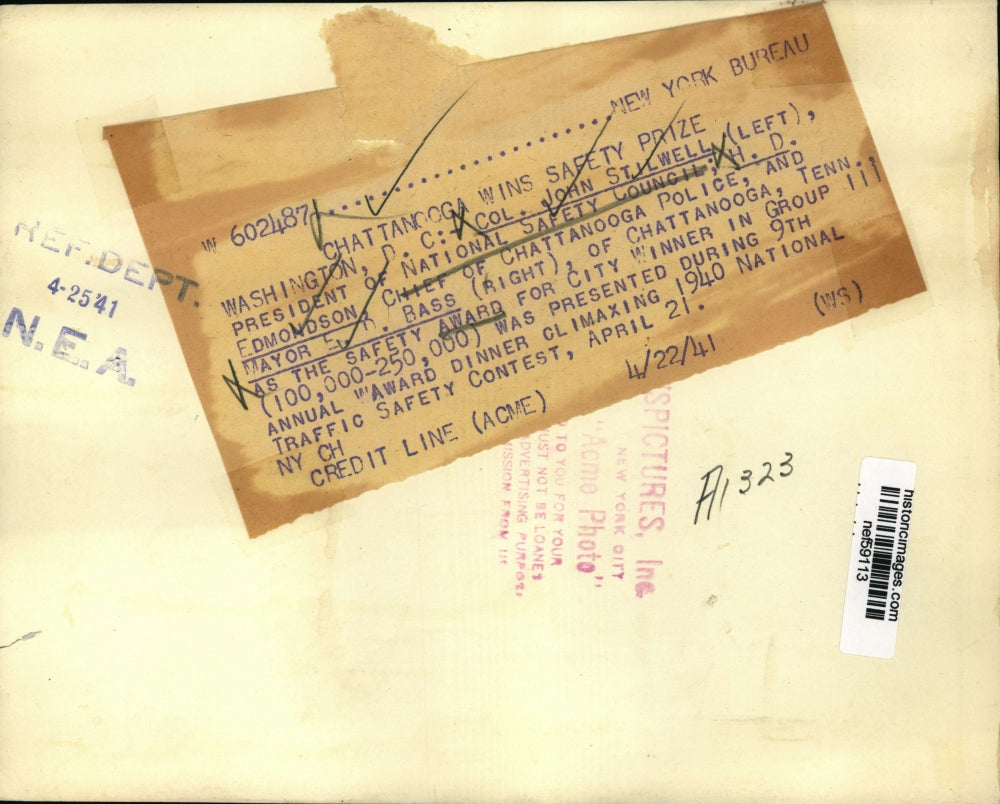 W 602487....................NEW YORK BUREAU
CHATTANOOGA WINS SAFETY PRIZE
WASHINGTON, D. C: COL. JOHN STILWELL (LEFT),
PRESIDENT OF NATIONAL SAFETY COUNCIL; H. D.
EDMONDSON CHIEF OF CHATTANOOGA POLICE, AND
MAYOR E. R. BASS (RIGHT), OF CHATTANOOGA, TENN.,
AS THE SAFETY AWARD FOR CITY WINNER IN GROUP III
(100,000-250,000) WAS PRESENTED DURING 9TH
ANNUAL WAWARD DINNER CLIMAXING 1940 NATIONAL
TRAFFIC SAFETY CONTEST, APRIL 21.
NY CH 4/22/41 (WS)
CREDIT LINE (ACME)
REF. DEPT.
4-25 41
N.E.A.
SPICTURES, Inc
NEW YORK CITY
"Acme Photo"
TO YOU FOR YOUR
UST NOT BE LOANED
DVERTISING PURPOS,
ISSION FROM US
A1323
historicimages.com
nef59113